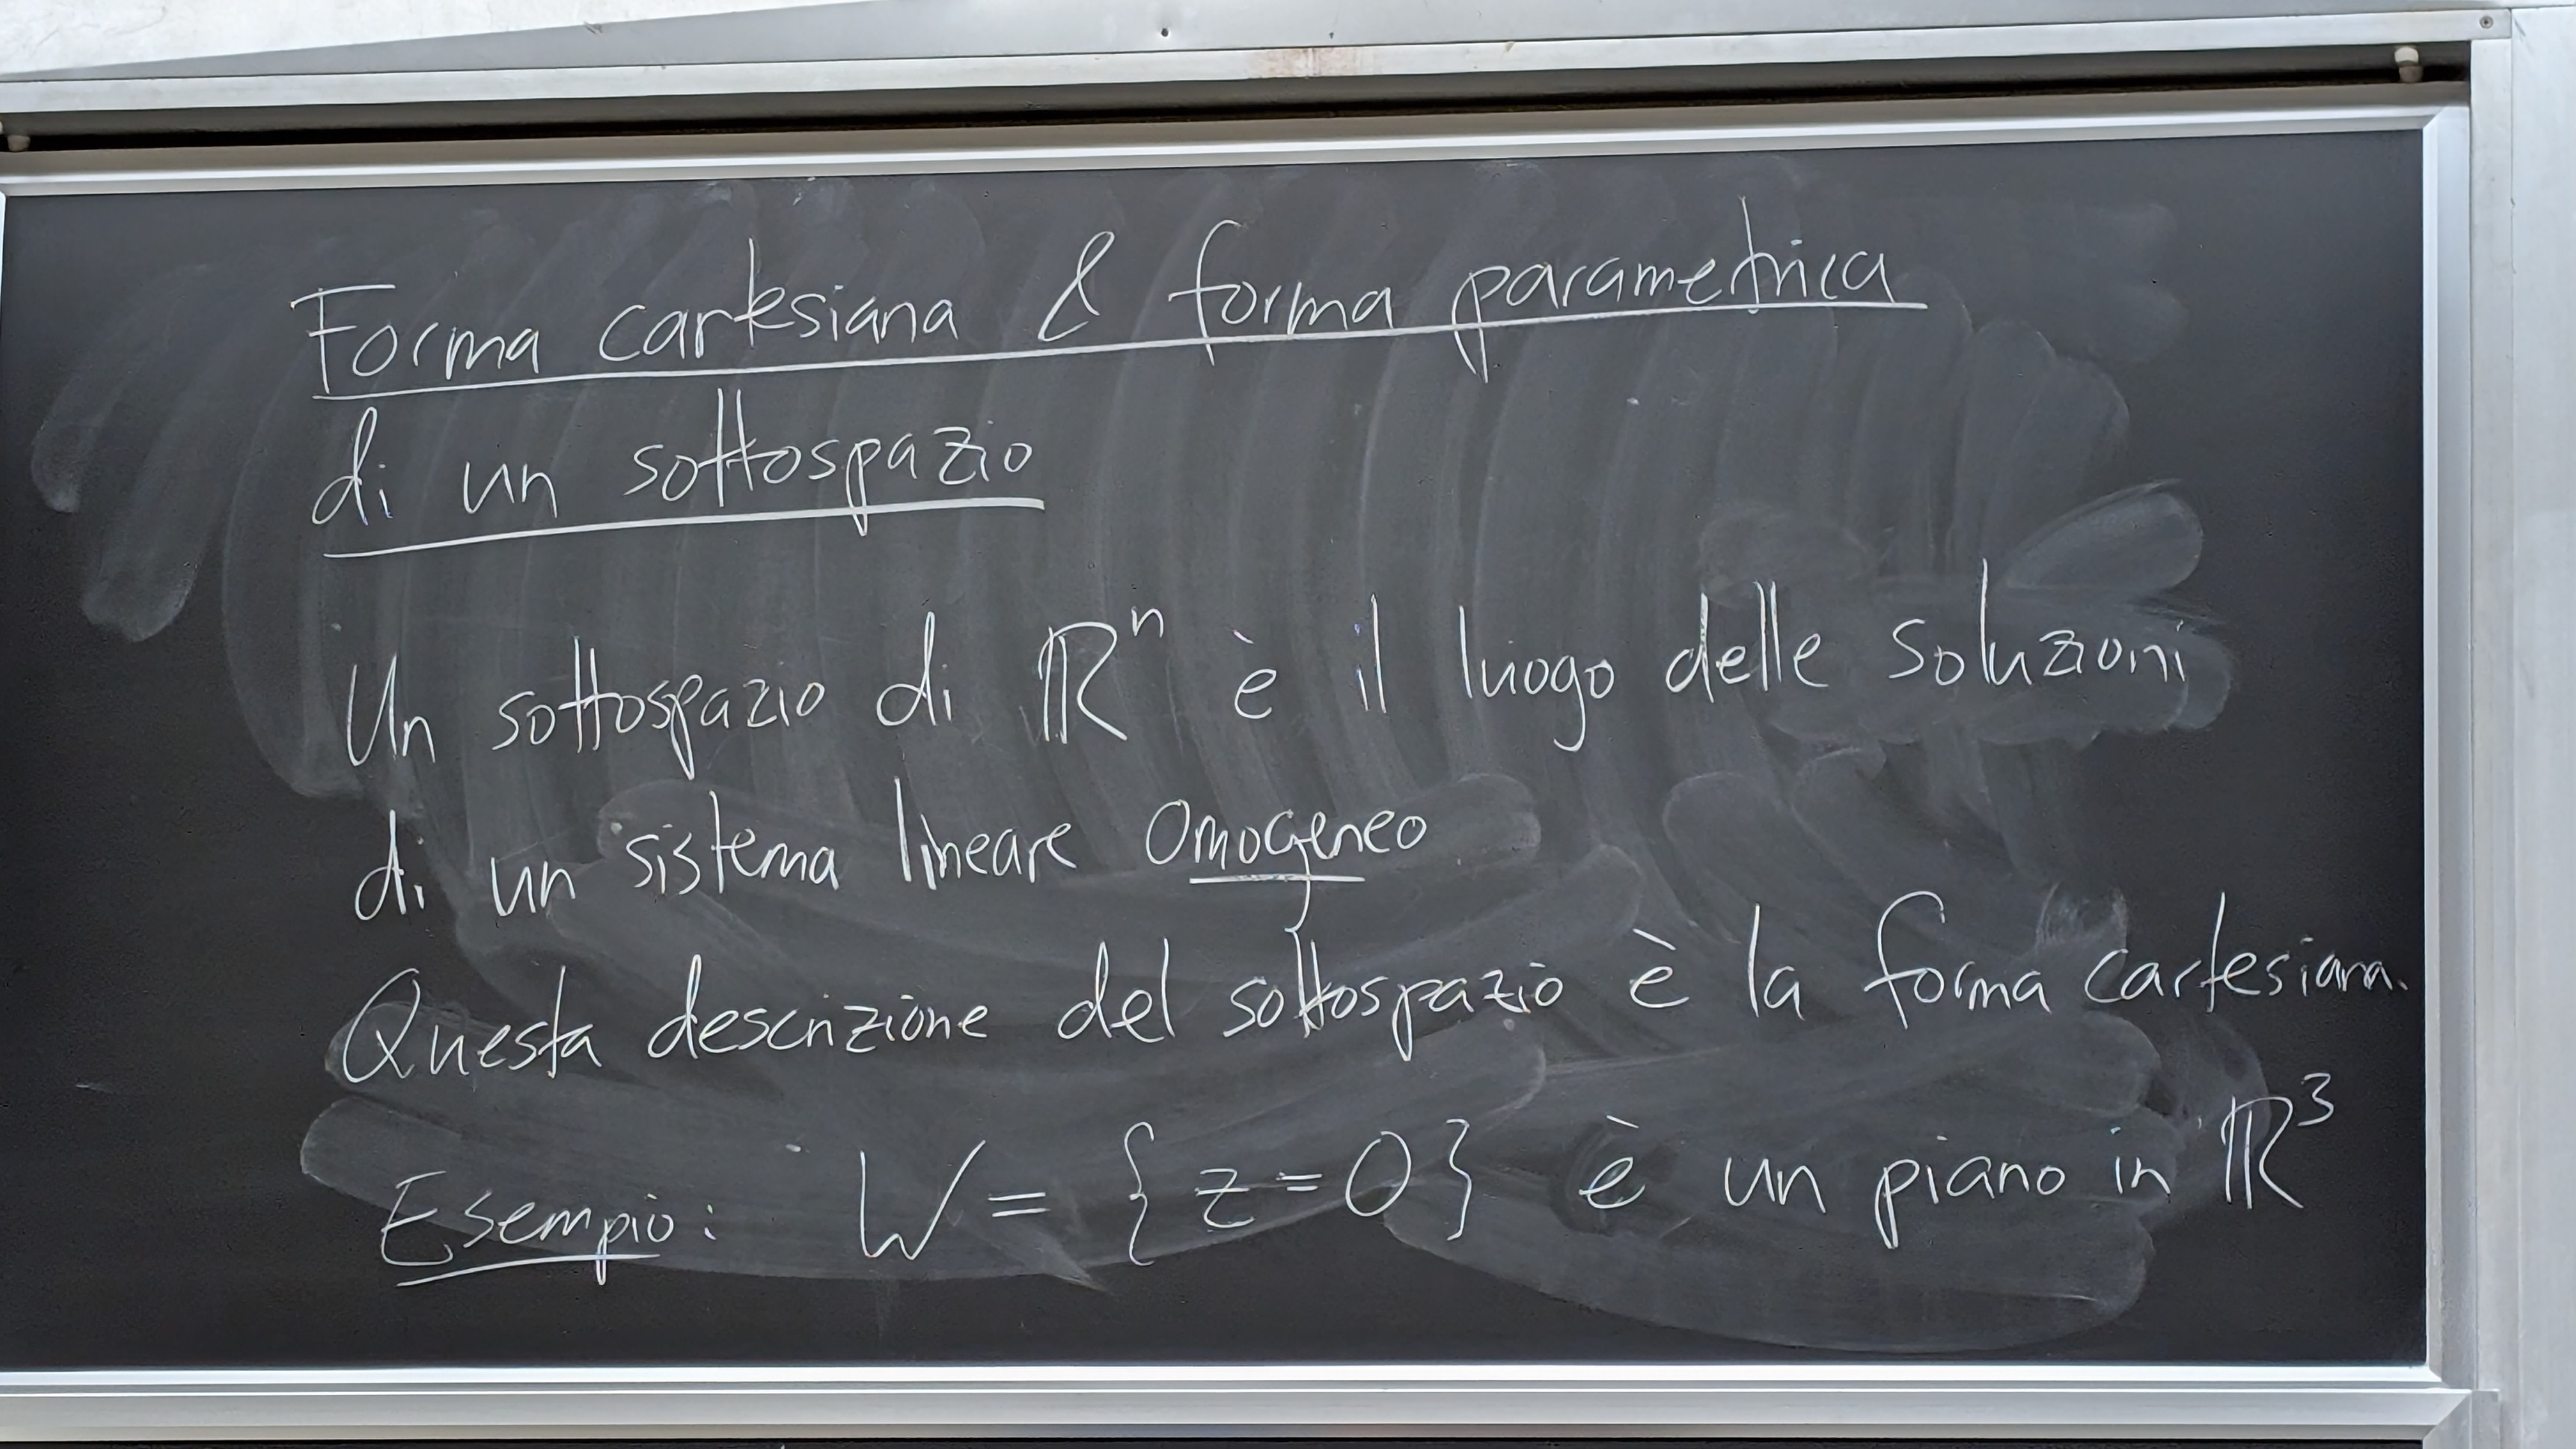 Forma cartesiana & forma parametrica
di un sottospazio
Un sottospazio di ℝⁿ è il luogo delle soluzioni
di un sistema lineare omogeneo
Questa descrizione del sottospazio è la forma cartesiana.
Esempio: W = { z = 0 } è un piano in ℝ³